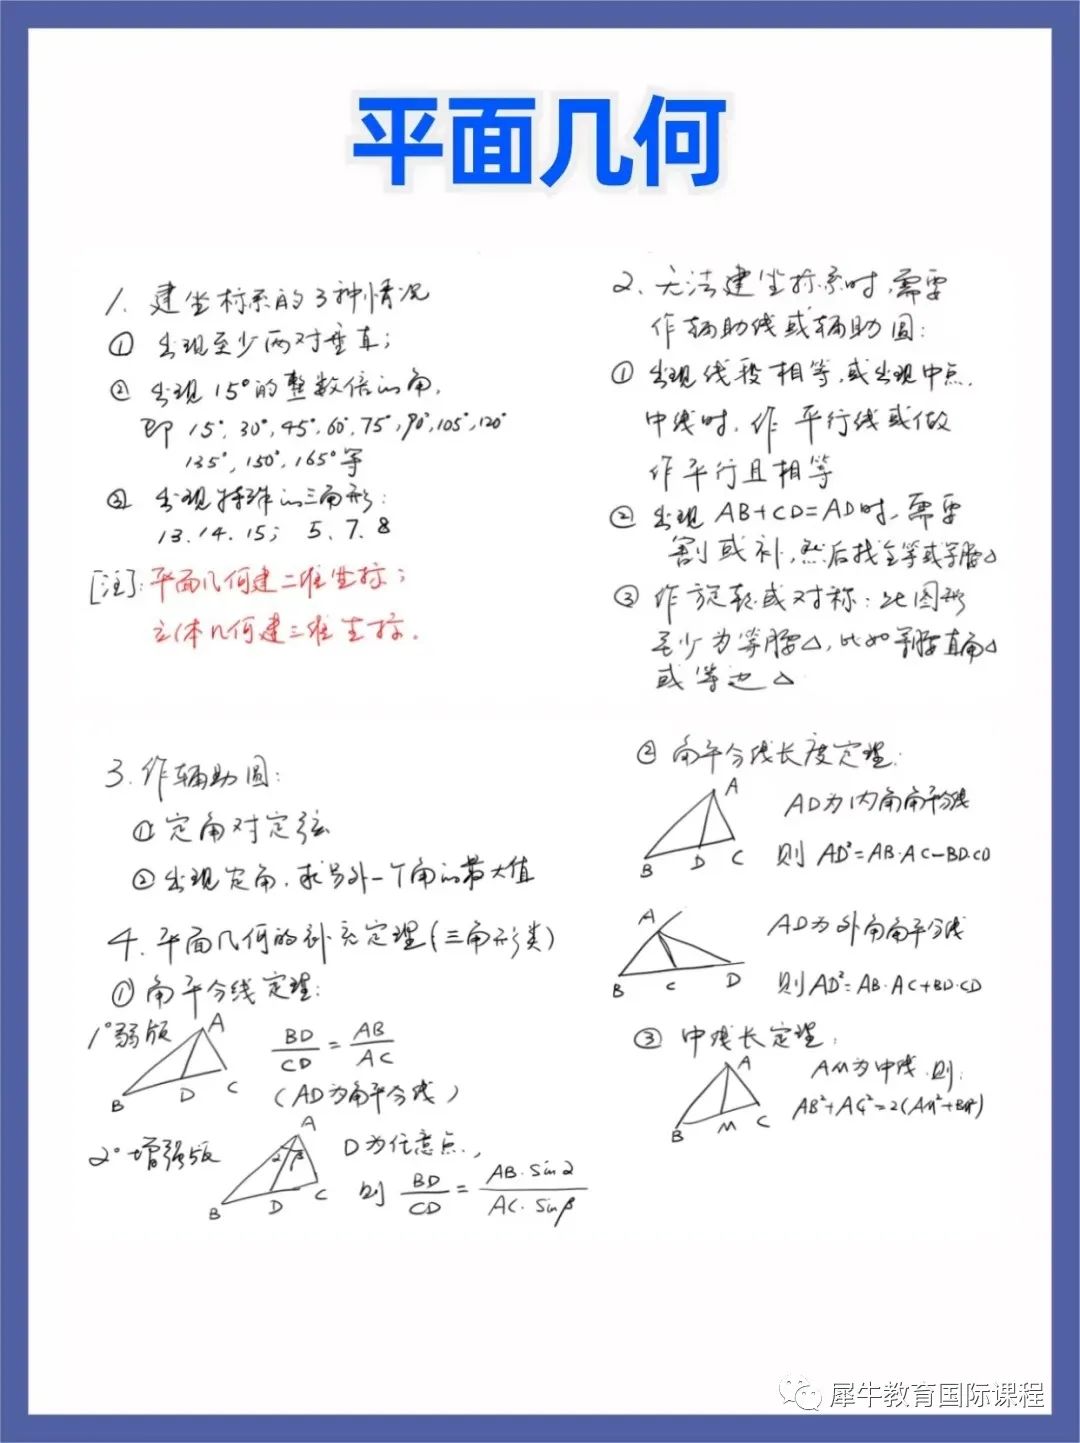 平面几何
1. 建坐标系的3种情况
① 出现至少两对垂直;
② 出现15°的整数倍的角,
即 15°, 30°, 45°, 60°, 75°, 90°, 105°, 120°
135°, 150°, 165°等
③ 出现特殊的三角形:
13. 14. 15; 5. 7. 8
[注]: 平面几何建二维坐标;
立体几何建三维坐标.
2. 无法建坐标系时, 需要
作辅助线或辅助圆:
① 出现线段相等, 或出现中点.
中线时, 作 平行线或做
作平行且相等
② 出现 AB+CD=AD时, 需要
割或补, 然后找全等或等腰△
③ 作旋转或对称: 此图形
至少为等腰△, 比如等腰直角△
或等边△
3. 作辅助圆:
① 定角对定弦
② 出现定角, 求另外一个角的最大值
4. 平面几何的补充定理(三角形类)
① 角平分线定理:
1° 弱版
A
B
D
C
BD/CD = AB/AC
(AD为角平分线)
2° 增强版
A
α β
B
D
C
D为任意点,
则 BD/CD = AB·sinα/AC·sinβ
② 角平分线长度定理:
A
B
D
C
AD为内角角平分线
则 AD²=AB·AC-BD·CD
A
B
C
D
AD为外角角平分线
则 AD²=-AB·AC+BD·CD
③ 中线长定理:
A
B
M
C
AM为中线, 则:
AB²+AC²=2(AM²+BM²)
犀牛教育国际课程